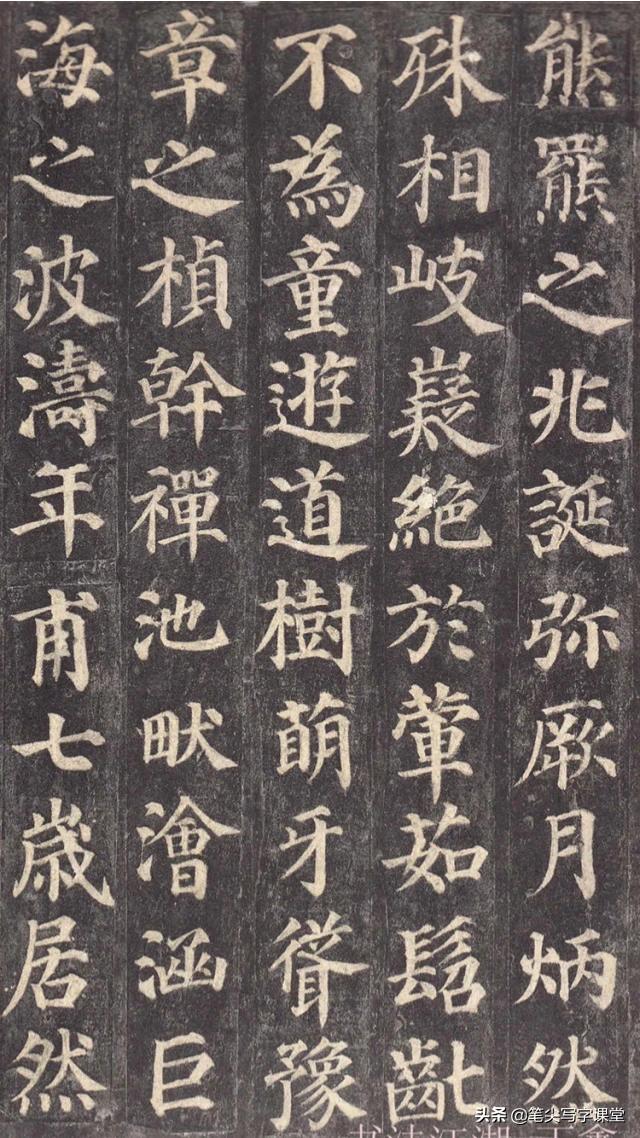 熊羆之兆誕弥厥月炳然
殊相岐嶷絶於葷茹髫齔
不為童遊道樹萌牙聳豫
章之楨幹禪池畎澮涵巨
海之波濤年甫七歳居然
头条 @笔尖写字课堂